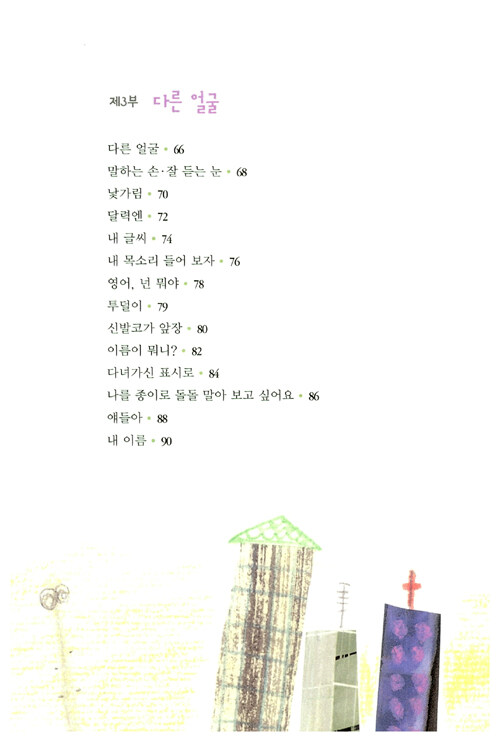 제3부 다른 얼굴
다른 얼굴 • 66
말하는 손·잘 듣는 눈 • 68
낯가림 • 70
달력엔 • 72
내 글씨 • 74
내 목소리 들어 보자 • 76
영어, 넌 뭐야 • 78
투덜이 • 79
신발코가 앞장 • 80
이름이 뭐니? • 82
다녀가신 표시로 • 84
나를 종이로 돌돌 말아 보고 싶어요 • 86
얘들아 • 88
내 이름 • 90